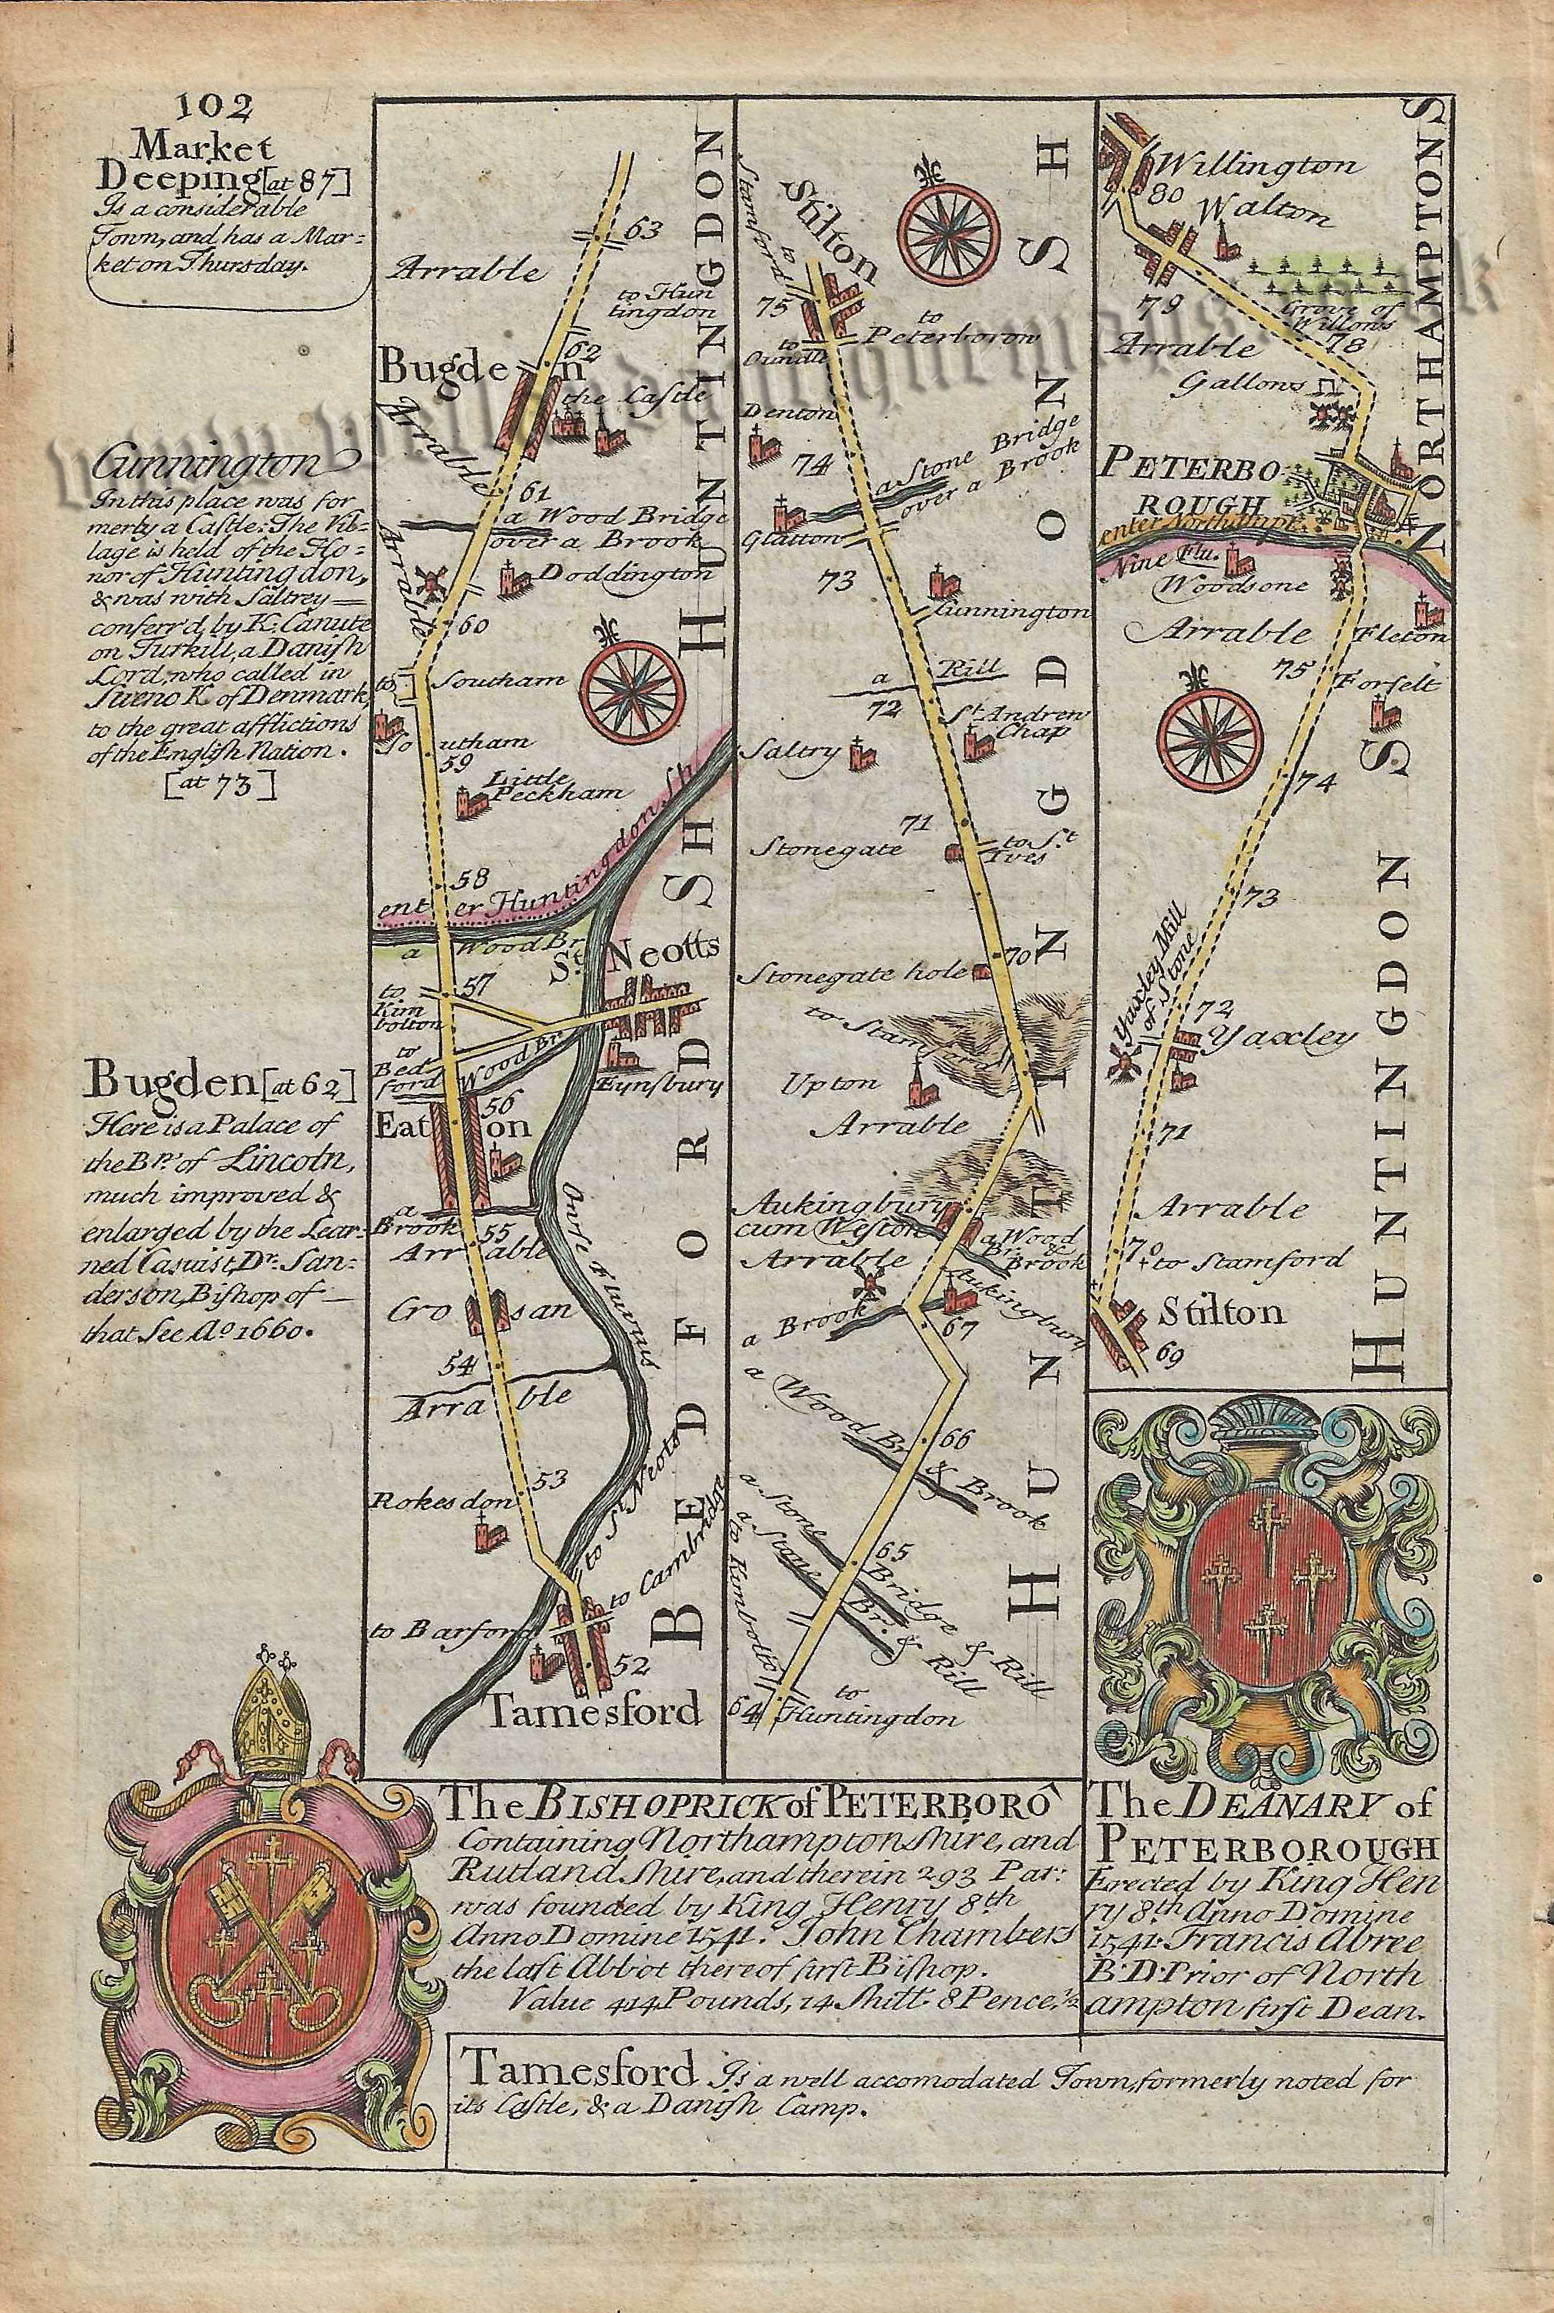 102
Market
Deeping [at 87]
Is a considerable
Town, and has a Mar=
ket on Thursday.
Cunnington
In this place was for
merly a Castle: The Vil=
lage is held of the Ho=
nor of Huntingdon,
& was with Saltrey
conferr'd by K. Canute
on Turkill, a Danish
Lord, who called in
Sueno K. of Denmark,
to the great afflictions
of the English Nation.
[at 73]
Bugden [at 62]
Here is a Palace of
the Bp. of Lincoln,
much improved &
enlarged by the Lear-
ned Casuist, Dr. San:
derson, Bishop of
that See Ao. 1660.
63
Arrable
to Hun
tingdon
62
Bugden
the Castle
Arrable
61
a Wood Bridge
over a Brook
Arrable
Doddington
60
to Southam
Southam
59
Little
Peckham
58
enter Huntingdon Sh
a Wood Br
St. Neotts
57
to
Kim
bolton
to
Bed
ford
Wood Br.
Eynsbury
56
Eaton
a
Brook
55
Arrable
Crosan
Ouse Fluvius
54
Arrable
53
Rokesdon
to St. Neots
to Cambridge
to Barford
52
Tamesford
HUNTINGDON
BEDFORDSH
Stamford
to
Stilton
75
to
Oundle
to
Peterborow
Denton
74
a Stone Bridge
over a Brook
Glatton
73
Cunnington
a Rill
72
St. Andrew
Chap
Saltry
71
Stonegate
to St.
Ives
70
Stonegate hole
to Stamford
Upton
Arrable
Aukingbury
cum Weston
Arrable
a Wood
Br. &
Brook
Aukingbury
a Brook
67
a Wood Br. & Brook
66
a Stone Bridge & Rill
65
a Stone Br. & Rill
to Kimbolton
64
to
Huntingdon
HUNTINGDONSH
Willington
80
Walton
79
Grove of
Willows
Arrable
78
Gallows
PETERBO
ROUGH
enter Northampt.
Nine Flu.
Woodsone
Arrable
Fleton
75
Forselt
74
73
Yaxley Mill
of Stone
72
Yaxley
71
Arrable
70
to Stamford
Stilton
69
NORTHAMPTONS
HUNTINGDON S
The BISHOPRICK of PETERBORÔ
Containing Northamptonshire, and
Rutland shire, and therein 293 Par:
was founded by King Henry 8th
Anno Domine 1541. John Chambers
the last Abbot thereof first Bishop.
Value 414 Pounds, 14 Shill: 8 Pence, ½
The DEANARY of
PETERBOROUGH
Erected by King Hen
ry 8th Anno Domine
1541. Francis Abree
B:D: Prior of North
ampton first Dean.
Tamesford Is a well accomodated Town, formerly noted for
its Castle, & a Danish Camp.